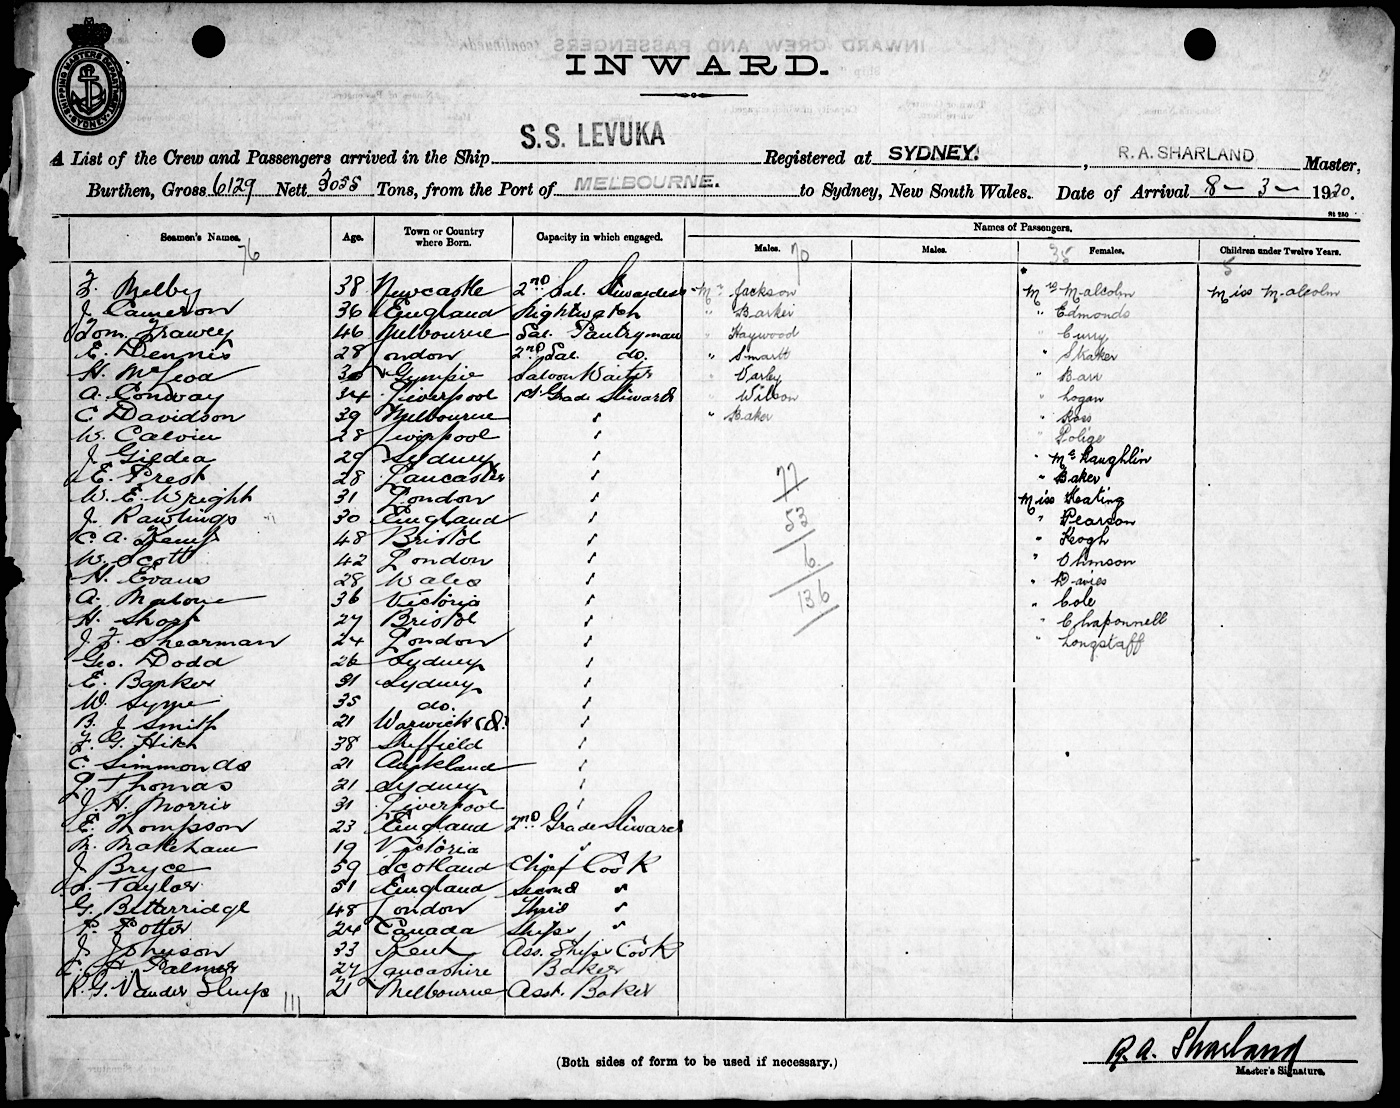 SHIPPING MASTERS DEPARTMENT SYDNEY
INWARD.
A List of the Crew and Passengers arrived in the Ship S.S. LEVUKA Registered at SYDNEY. , R. A. SHARLAND Master,
Burthen, Gross 6129 Nett 3055 Tons, from the Port of MELBOURNE. to Sydney, New South Wales. Date of Arrival 8 - 3 - 1920.
Seamen's Names. Age. Town or Country where Born. Capacity in which engaged. Names of Passengers.
Males. Males. Females. Children under Twelve Years.
76 70 35 5
F. Melby 38 Newcastle 2nd Sal. Stewardess Mr Jackson Mrs Malcolm Miss Malcolm
J. Cameron 36 England Nightwatch " Barker " Edmonds
Tom. Frawey 46 Melbourne Sal. Pantryman " Haywood " Curry
E. Dennis 28 London 2nd Sal. do. " Smartt " Straker
H. McLeod 30 Gympie Saloon Waiter " Varley " Barr
A. Conway 34 Liverpool 1st Grade Steward " Wilson " Logan
C. Davidson 39 Melbourne " " Baker " Ross
W. Calvin 28 Liverpool " "
J. Gildea 29 Sydney " " McLaughlin
E. Prest 28 Lancaster " " Baker
W. E. Wright 31 London " Miss Keating
J. Rawlings 30 England " " Pearson
C. A. Kemp 48 Bristol " " Keogh
W. Scott 42 London " " Ohmson
H. Evans 28 Wales " " Davies
A. Malone 36 Victoria " " Cole
H. Short 27 Bristol " " Chaponnell
J. F. Shearman 24 London " " Longstaff
Geo. Dodd 26 Sydney "
E. Barker 31 Sydney "
W. Syme 35 do. "
B. J. Smith 21 Warwick (Q.) "
F. G. Hitch 38 Sheffield "
C. Simmonds 21 Auckland "
L. Thomas 21 Sydney "
J. H. Morris 31 Liverpool "
E. Thompson 23 England 2nd Grade Steward
M. Makeham 19 Victoria "
J. Bryce 59 Scotland Chief Cook
L. Taylor 51 England Second "
G. Betteridge 48 London Third "
P. Potter 24 Canada Ships "
J. Johnson 33 Kent Ass. Ships Cook
C. H. Palmer 27 Lancashire Baker
R. G. Vander Sluys 21 Melbourne Asst. Baker
77
53
6
136
111
(Both sides of form to be used if necessary.)
R. A. Sharland
Master's Signature.